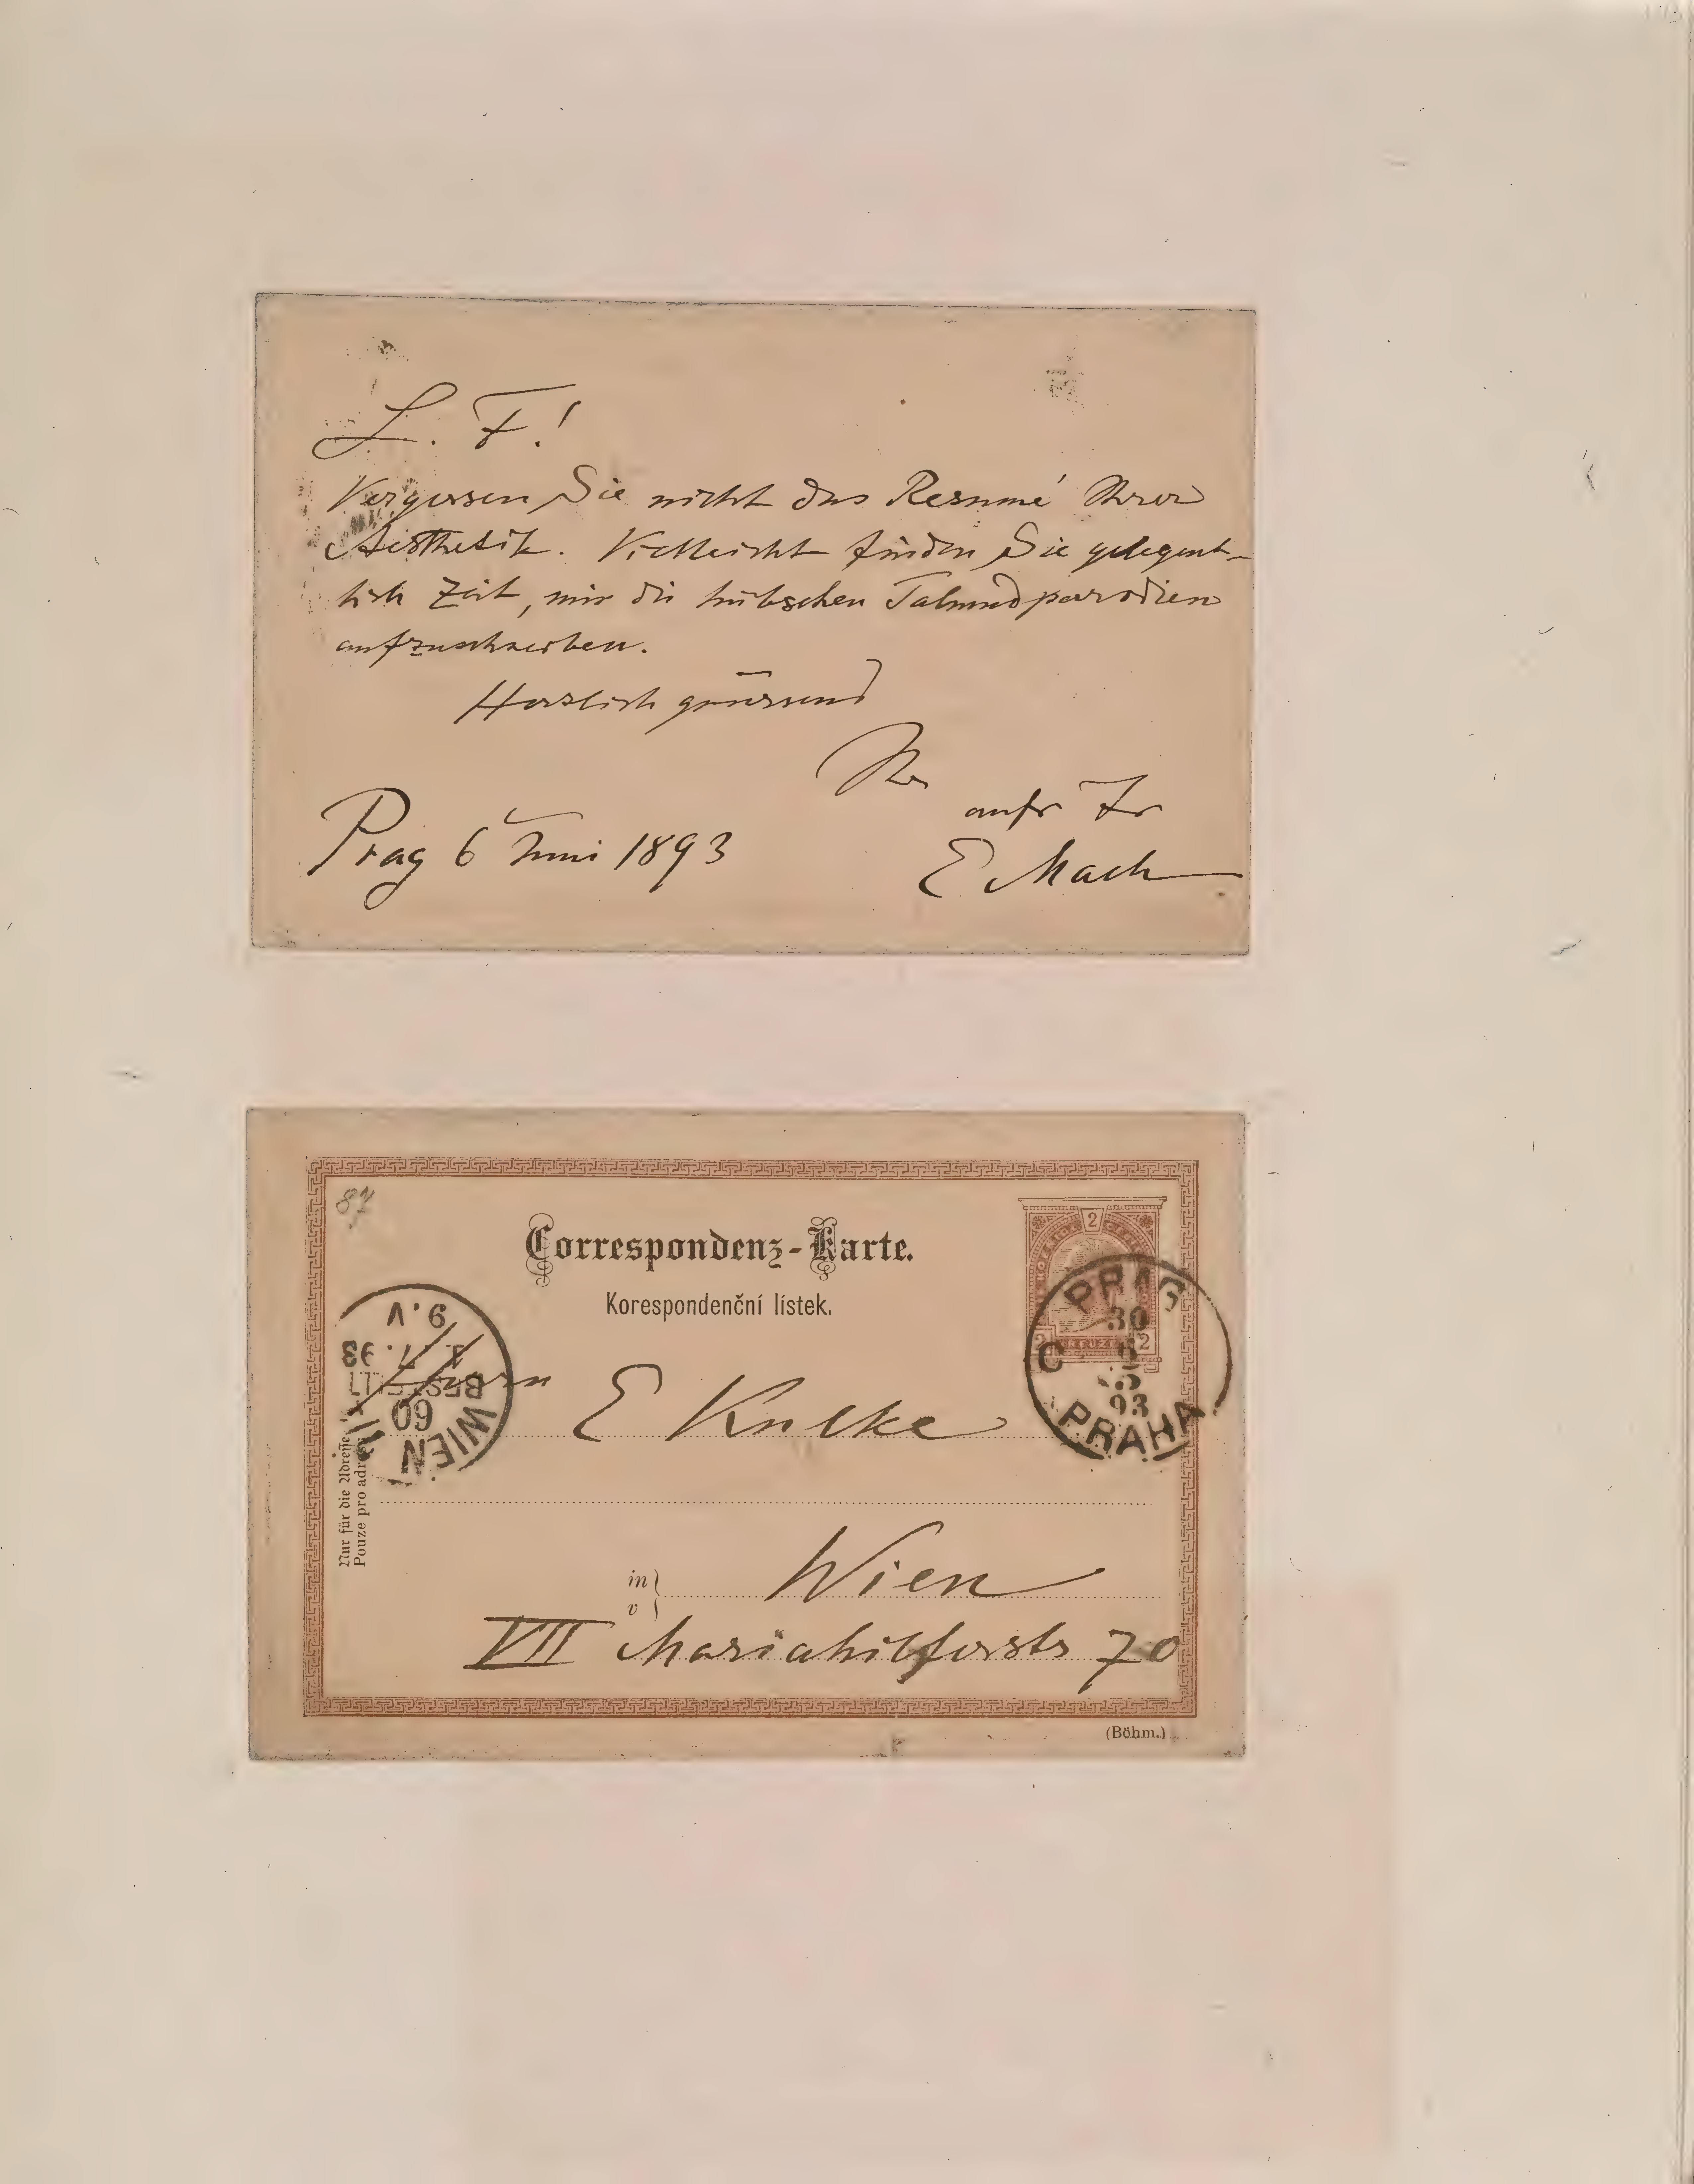 L. F!
Vergessen Sie nicht das Resumé Ihrer
Aesthetik. Vielleicht finden Sie gelegent-
lich Zeit, mir die hübschen Talmudparodien
aufzuschreiben.
Herzlich grüssend
Ihr
aufr Fr
E Mach
Prag 6 Juni 1893
87
Correspondenz-Karte.
Korespondenční lístek.
2
2 KREUZER 2
PRAG
30
5
93
C
PRAHA
WIEN
60
BESTELLT
1. 7. 93
9. V
Herrn E Kulke
Nur für die Adresse
Pouze pro adre
in
v
Wien
VII Mariahilferstr 70
(Böhm.)